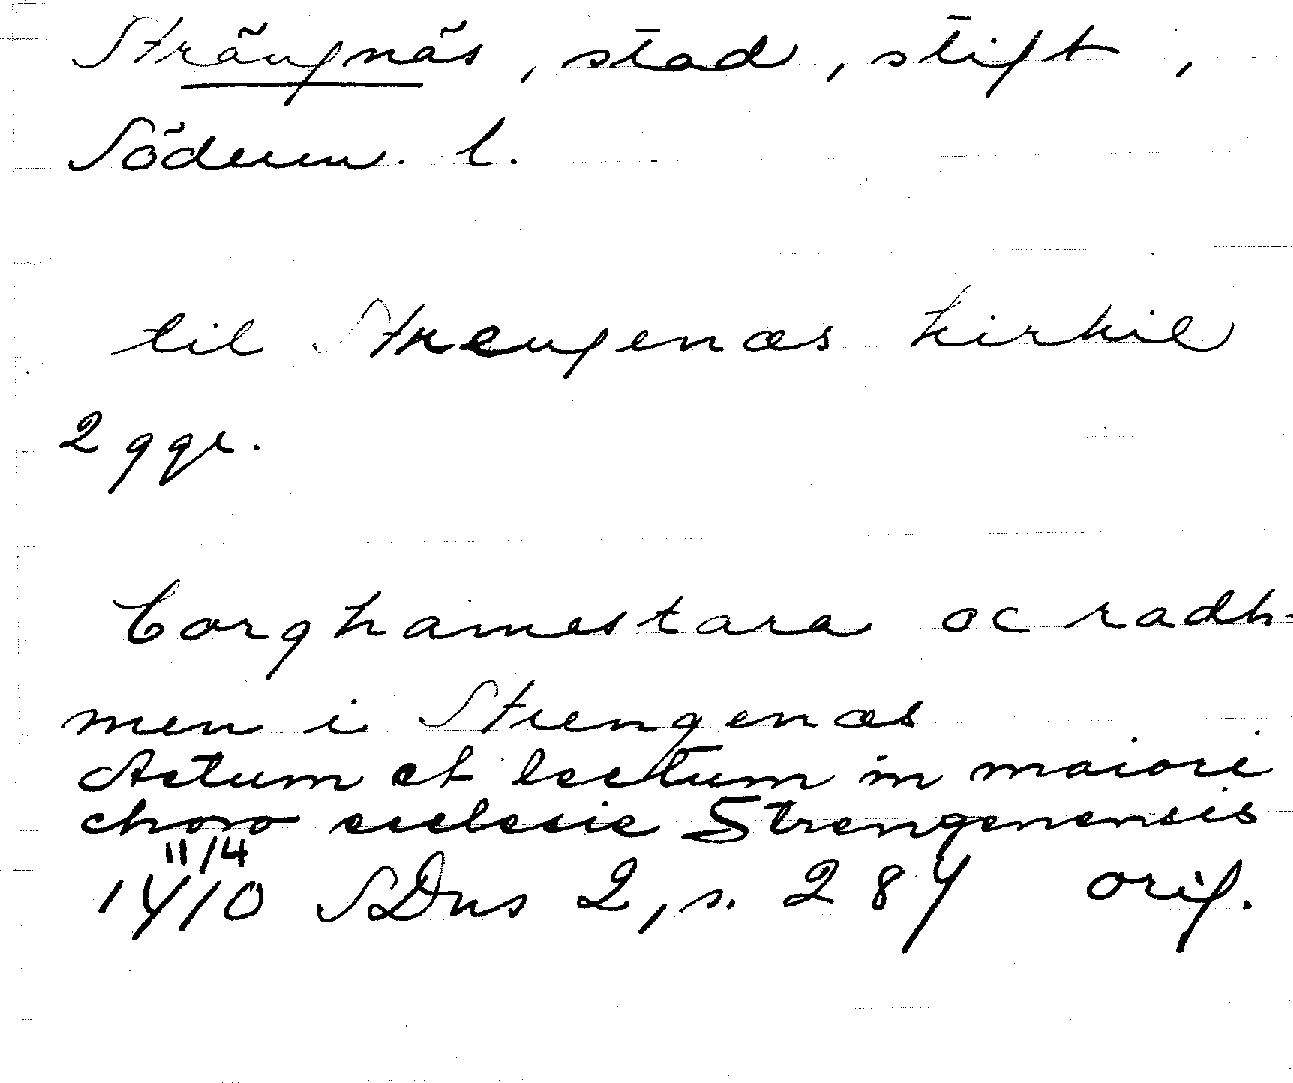 Strängnäs, stad, stift,
Söderm. l.
til Strengenæs kirkil
2 ggr.
borghamestara oc radh-
men i Strengenæs
Actum et lectum in maiori
choro ecclesie Strengenensis
11/4
1410 SDns 2, s. 284 orig.